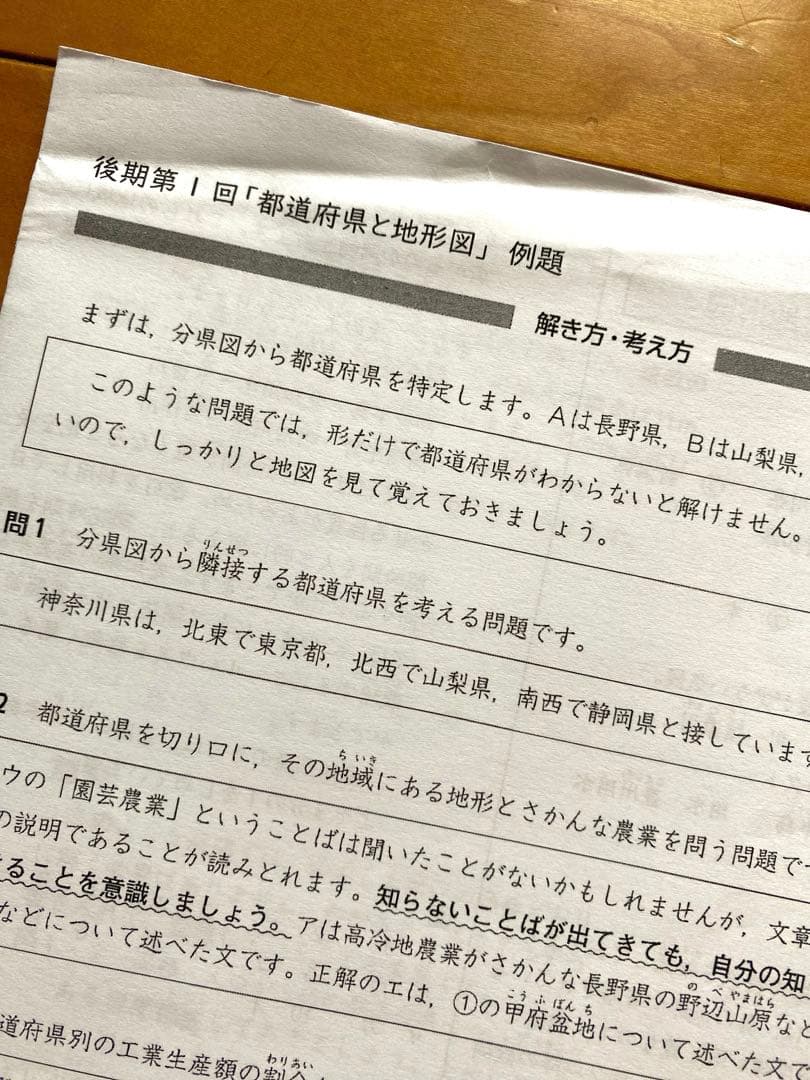 後期第1回「都道府県と地形図」例題
解き方・考え方
まずは，分県図から都道府県を特定します。Aは長野県，Bは山梨県，
このような問題では，形だけで都道府県がわからないと解けません。
いので，しっかりと地図を見て覚えておきましょう。
問1 分県図から隣接する都道府県を考える問題です。
神奈川県は，北東で東京都，北西で山梨県，南西で静岡県と接しています
2 都道府県を切り口に，その地域にある地形とさかんな農業を問う問題で
ウの「園芸農業」ということばは聞いたことがないかもしれませんが，文章
の説明であることが読みとれます。知らないことばが出てきても，自分の知
ることを意識しましょう。アは高冷地農業がさかんな長野県の野辺山原など
などについて述べた文です。正解のエは，①の甲府盆地について述べた文で
道府県別の工業生産額の割合